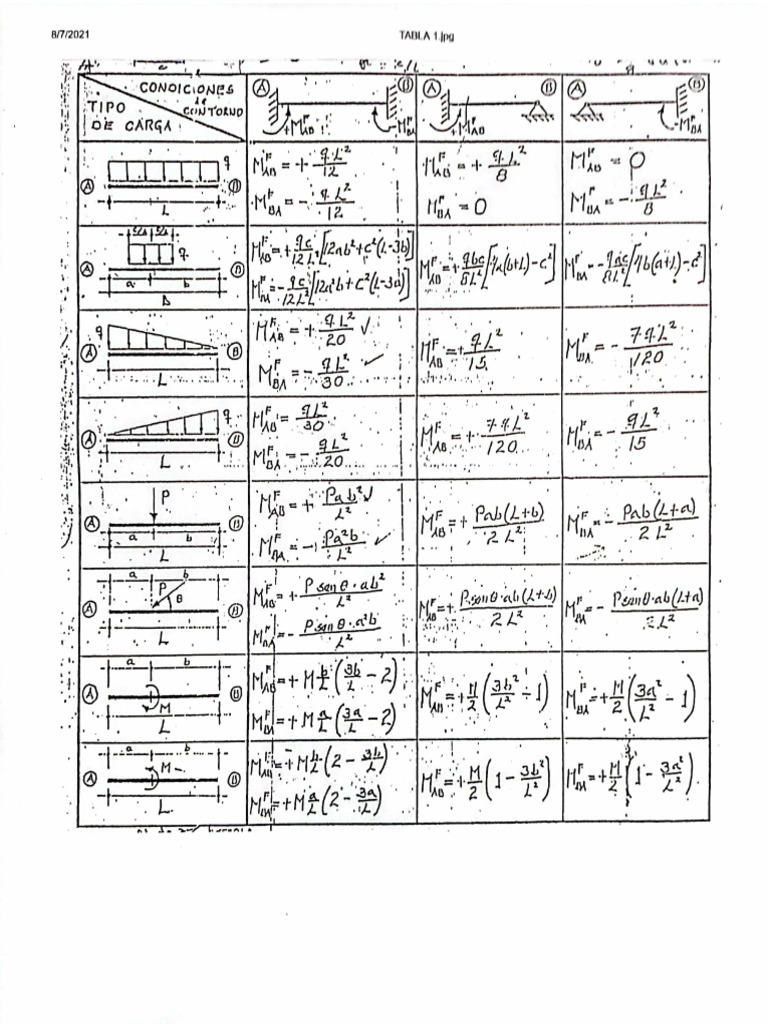 8/7/2021
TABLA 1.jpg
CONDICIONES
de
CONTORNO
TIPO
DE CARGA
A
B
+M^F_AB
-M^F_BA
A
B
+M^F_AB
A
B
-M^F_BA
A q B
L
M^F_AB = + qL²/12
M^F_BA = - qL²/12
M^F_AB = + qL²/8
M^F_BA = 0
M^F_AB = 0
M^F_BA = - qL²/8
A c/2 c/2 q B
a b
M^F_AB = + qc/12L² [12ab²+c²(L-3b)]
M^F_BA = - qc/12L² [12a²b+c²(L-3a)]
M^F_AB = + qbc/8L² [4a(b+L)-c²]
M^F_BA = - qac/8L² [4b(a+L)-c²]
q A B
L
M^F_AB = + qL²/20 ✓
M^F_BA = - qL²/30 ✓
M^F_AB = + qL²/15
M^F_BA = - 7qL²/120
A q B
L
M^F_AB = qL²/30
M^F_BA = - qL²/20
M^F_AB = + 7qL²/120
M^F_BA = - qL²/15
A P B
a b
L
M^F_AB = + Pab²/L² ✓
M^F_BA = - Pa²b/L² ✓
M^F_AB = + Pab(L+b)/2L²
M^F_BA = - Pab(L+a)/2L²
a b
A P θ B
L
M^F_AB = + P sen θ·ab²/L²
M^F_BA = - P sen θ·a²b/L²
M^F_AB = + P sen θ·ab(L+b)/2L²
M^F_BA = - P sen θ·ab(L+a)/2L²
a b
A M B
L
M^F_AB = + M b/L (3b/L - 2)
M^F_BA = + M a/L (3a/L - 2)
M^F_AB = + M/2 (3b²/L² - 1)
M^F_BA = + M/2 (3a²/L² - 1)
a b
A M B
L
M^F_AB = + M b/L (2 - 3b/L)
M^F_BA = + M a/L (2 - 3a/L)
M^F_AB = + M/2 (1 - 3b²/L²)
M^F_BA = + M/2 (1 - 3a²/L²)